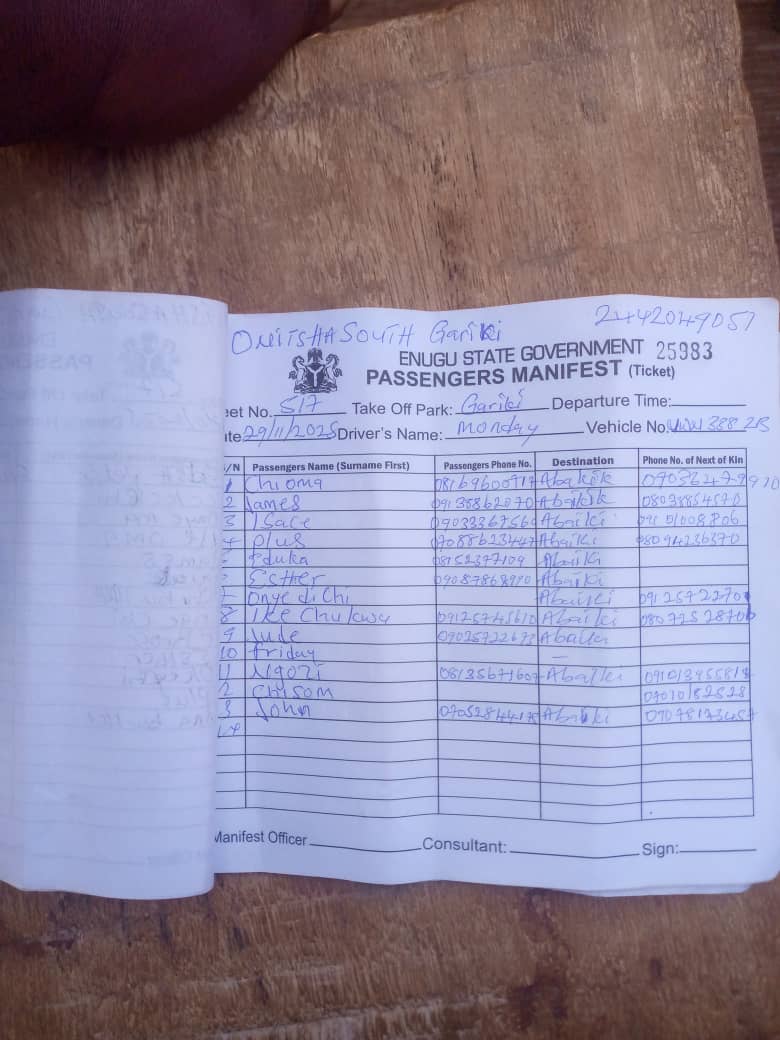 ONITSHA SOUTH Gariki 2442049057
ENUGU STATE GOVERNMENT 25983
PASSENGERS MANIFEST (Ticket)
eet No. 517 Take Off Park: Gariki Departure Time:
ate 29/11/2025 Driver's Name: Monday Vehicle No. 388 ZB
S/N Passengers Name (Surname First) Passengers Phone No. Destination Phone No. of Next of Kin
1 Chioma
2 James 09138862070
3 Isace 09033367560 Abaiki 09101008806
4 Plus 07088623447 Abaiki 08094236370
Eduka 08152377109 Abaiki
Esther 09087868910 Abaiki
Onye di Chi Abaiki 09125722701
8 Ike Chukwu 09125745610 Abaiki 08072528706
9 Jude
10 Friday —
11 Ngozi 08135671607 Abaiki
2 Chisom 07010182828
3 John Abaiki 09078173457
14
Manifest Officer Consultant: Sign: